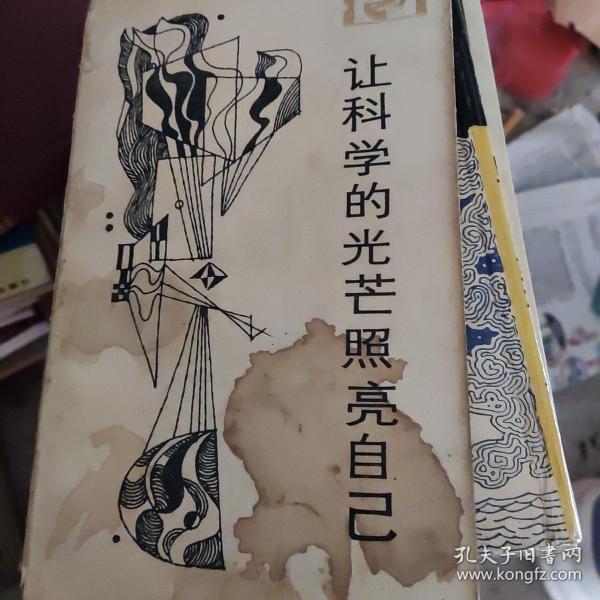 让科学的光芒照亮自己
孔夫子旧書网
www.kongfz.com